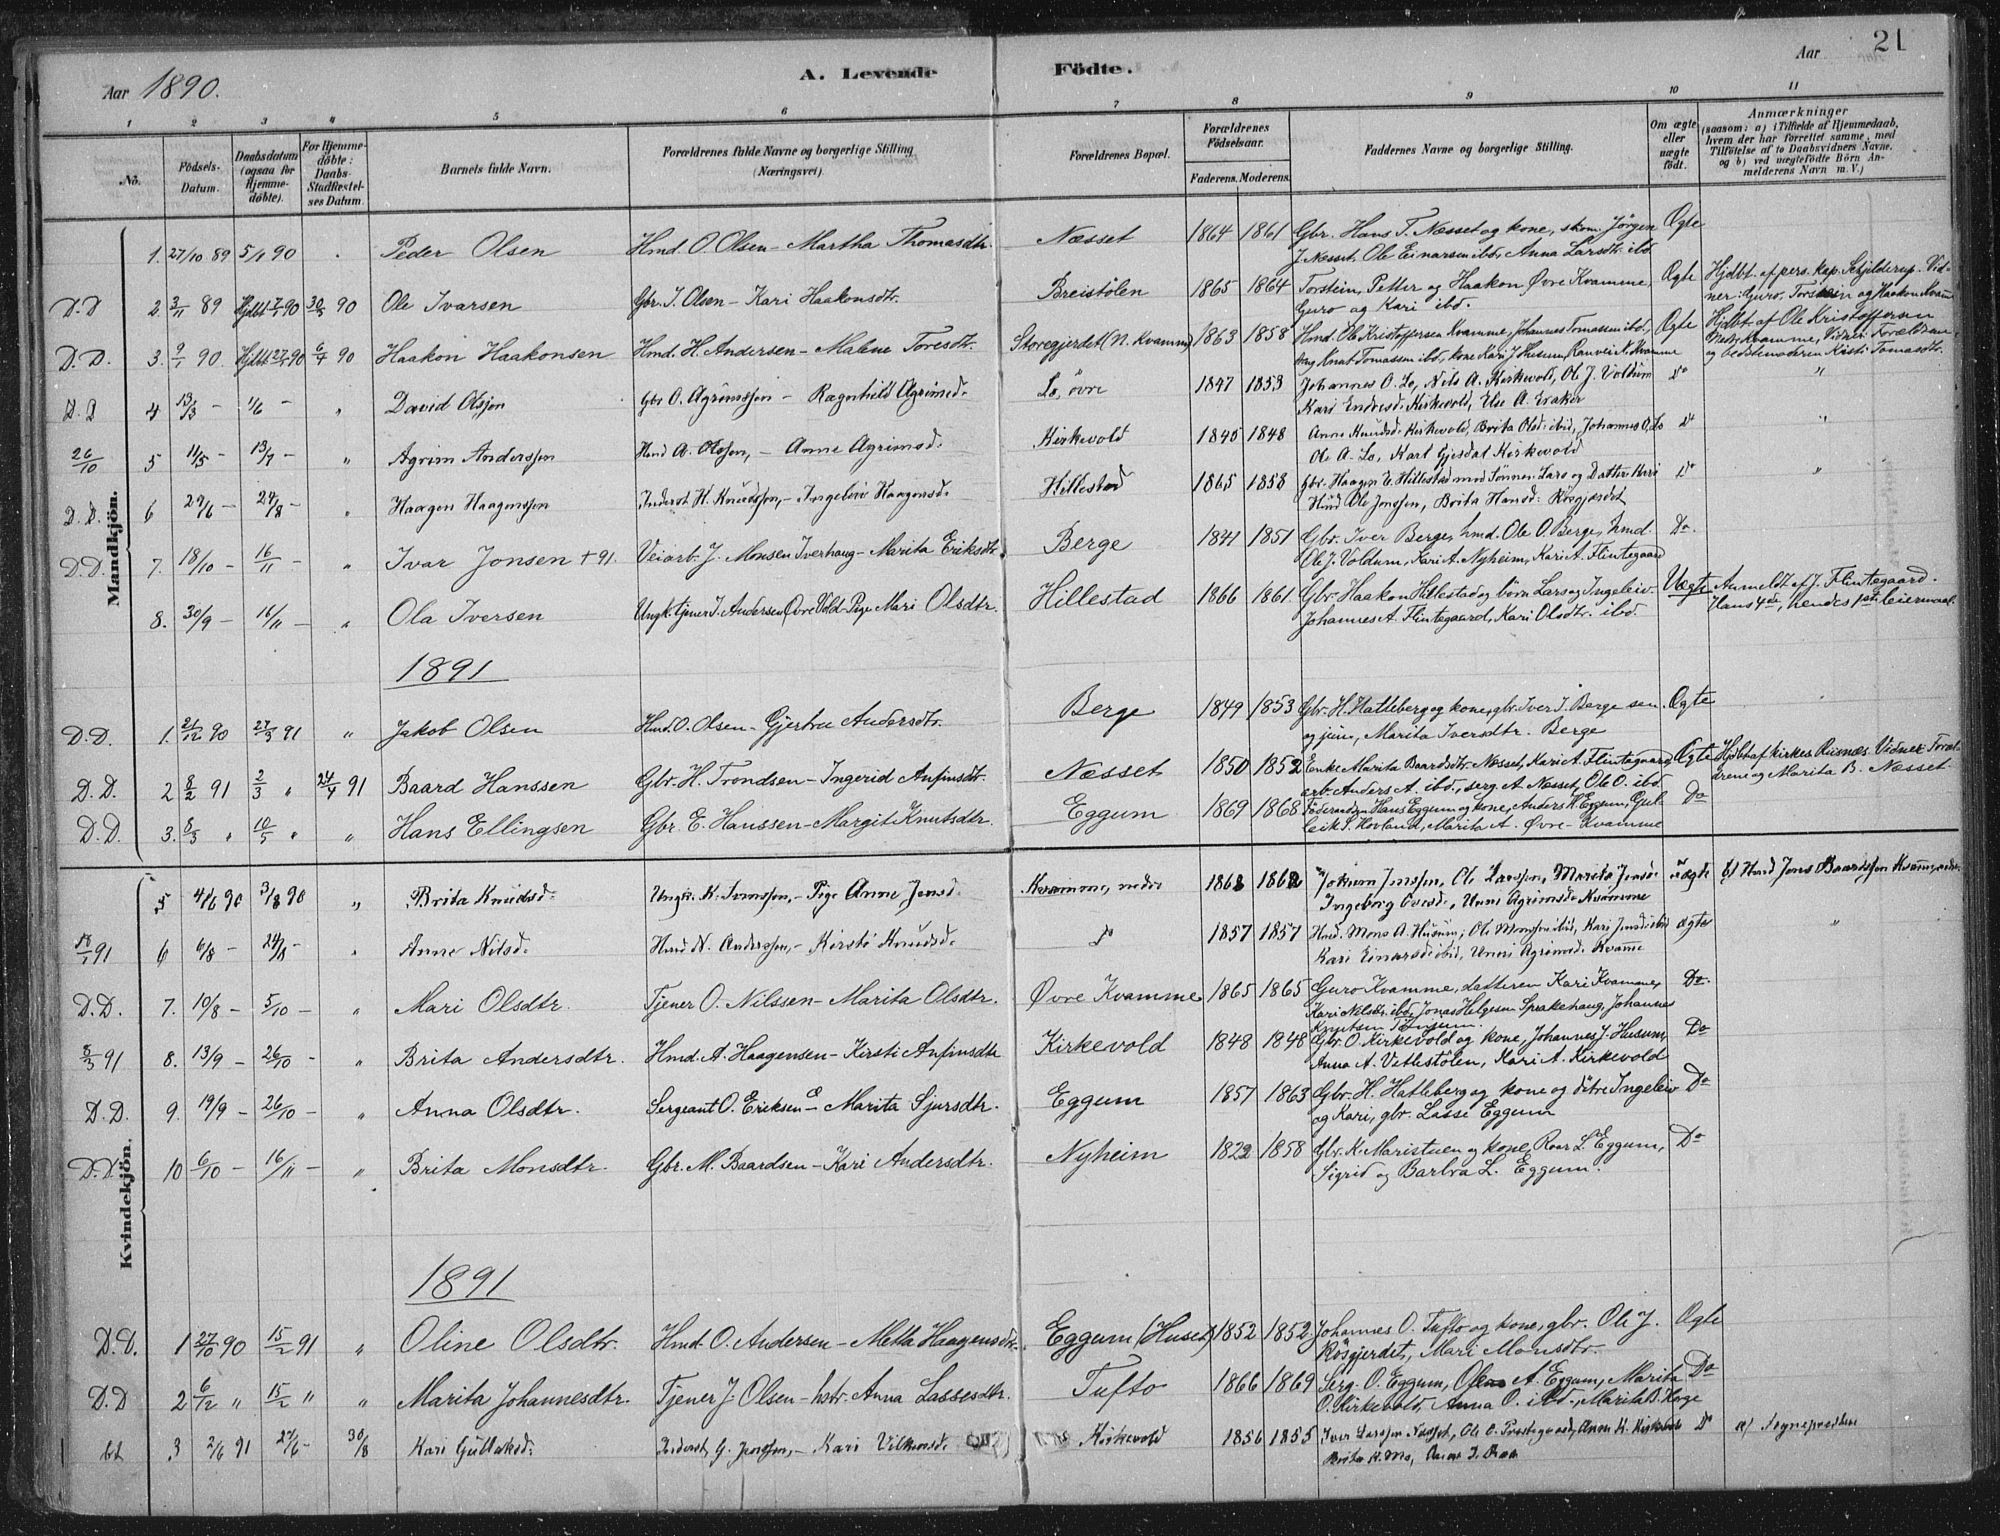 21
Aar 1890.
A. Levende Födte.
Aar
1 2 3 4 5 6 7 8 9 10 11
No. Födsels-Datum. Daabsdatum (ogsaa for Hjemmedöbte). For Hjemmedöbte: Daabs-Stadfæstelses Datum. Barnets fulde Navn. Forældrenes fulde Navne og borgerlige Stilling (Næringsvei). Forældrenes Bopæl. Forældrenes Födselsaar. Faderens. Moderens. Faddernes Navne og borgerlige Stilling. Om ægte eller uægte födt. Anmærkninger (saasom: a) i Tilfælde af Hjemmedaab, hvem der har forrettet samme, med Tilföielse af to Daabsvidners Navne, og b) ved uægtefödte Börn Anmelderens Navn m. V.)
Mandkjön.
1. 27/10 89 5/1 90 Peder Olsen Hmd. O. Olsen - Martha Thomasdtr. Næsset 1864 1861 Gbr. Hans T. Næsset og kone, skom. Jørgen Ogte
J. Næsset, Ole Einarsen ibd., Anna Larsdtr. ibd.
D.D 2. 3/11 89 Hjdbt 7/1 90 30/3 90 Ole Ivarsen Gbr. I. Olsen - Kari Haakonsdtr. Breistölen 1865 1864 Torstein, Petter og Haakon Øvre Kvamme, Ogte Hjdbt. af pers. kap. Schjelderup. Vid-
Guro og Kari ibd. ner: Guro, Torstein og Haakon Kvamme
D.D. 3. 9/1 90 Hjdbt 27/1 90 6/4 90 Haakon Haakonsen Hmd. H. Andersen - Malene Toresdtr. Storegjerdet (N. Kvamme) 1863 1858 Hmd. Ole Kristoffersen Kvamme, Johannes Tomassen ibd., Ogte Hjdbt. af Ole Kristoffersen
Knut Tomassen ibd., kone Kari J. Husum, Ranvei N. Kvamme Nedre Kvamme, Vidner: Forældrene og bedstemoderen Kirsti Tomasdtr.
D.D 4 13/3 - 1/6 - " David Olsson Gbr O. Agrimssøn - Ragnhild Agrimsd. Lo, øvre 1847 1853 Johannes O. Lo, Nils A. Kirkevold, Ole J. Voldum Do "
Kari Endresd. Kirkevold, Else A. Eraker
26/10 5 11/5 - 13/7 - " Agrim Anderssøn Hmd A. Olssøn, - Anne Agrimsd. Kirkevold 1845 1848 Anne Knudsd. Kirkevold, Brita Olsd. ibid, Johannes O. Lo Do "
Ole A. Lo, Karl Gjesdal Kirkevold
D.D. 6 29/6 - 24/8 - " Haagen Haagenssøn Inderst H. Knudssøn, - Ingeleiv Haagensd. Hillestad 1865 1858 Gbr. Haagen E. Hillestad med Sønnen Lars og Datter Kari Do "
Hmd Ole Jonssøn, Brita Hansd. Røsgjærdet
D.D. 7. 18/10 - 16/11 - " Ivar Jonsen + 91. Veiarb. J. Monsen Iverhaug - Marita Eriksdtr. Berge 1841 1851 Gbr. Iver Berge, hmd. Ole O. Berge, hmd. Do
Ole J. Voldum, Kari A. Nyheim, Kari A. Flintegaard
8. 30/9 - 16/11 - " Ola Iversen Ungk. tjener I. Andersen Øvre Vold - Pige Mari Olsdtr. Hillestad 1866 1861 Gbr. Haakon Hillestad og börn Lars og Ingeleiv. Uægte Anmeldt af J. Flintegaard.
Johannes A. Flintegaard, Kari Olsdtr. ibd. Hans 4de, hendes 1ste leiermaal.
1891
D.D. 1. 21/12 90 27/3 91 " Jakob Olsen Hmd. O. Olsen - Gjertru Andersdtr. Berge 1849 1853 Gbr. H. Hatleberg og kone, gbr. Iver I. Berge sen. Ogte
og jun, Marita Iversdtr. Berge
D.D. 2 8/2 91 2/3 " 24/4 91 Baard Hanssen Gbr. H. Trondsen - Ingerid Anfinsdtr. Næsset 1850 1852 Enke Marita Baardsdtr. Næsset, Kari A. Flintegaard, Ogte Hjdbt af kirkes. Rusnæs. Vidner Foræl-
arb. Anders A. ibd., serg. A. Næsset, Ole O. ibd. drene og Marita B. Næsset
D.D. 3. 8/3 " 10/5 " " Hans Ellingsen Gbr. E. Hanssen - Margit Knutsdtr. Eggum 1869 1868 Föderaadsm. Hans Eggum og kone, Anders H. Eggum, Do
S. Hovland, Marita A. Øvre-Kvamme
Kvindekjön.
5 4/6 90 3/8 90 " Brita Knudsd. Ungk. K. - Pige Anne Jensd. Kvamme, nedre 1868 1862 Jokum Jenssøn, Ole Larssøn, Marita Jensd. uægte b) Hmd Jens Baardssøn Kvamme nedre
Ingeborg Evesd., Unni Agrimsd. Kvamme
/1 91 6 6/8 - 24/8 - Anne Nilsd. Hmd N. Anderssøn, - Kirsti Knudsd. Do 1857 1857 Hmd. Mons A. Husum, Ole Monssøn ibid, Kari Jensd. ibid ægte "
Kari Einarsd. ibid, Unni Agrimsd. Kvamme
D.D. 7. 10/8 - 5/10 - " Mari Olsdtr. Tjener O. Nilssen - Marita Olsdtr. Øvre Kvamme 1865 1865 Guro Kvamme, datteren Kari Kvamme, Do
Kari Nilsdtr. ibd., Jonas Helgesen Sprakehaug, Johannes
Knutsen Tønjum.
8/3 91 8. 13/9 - 26/10 - " Brita Andersdtr. Hmd. A. Haagensen - Kirsti Anfinsdtr Kirkevold 1848 1848 Gbr. O. Kirkevold og kone, Johannes J. Husum, Do
Anna A. Vetlestölen, Kari A. Kirkevold
D.D. 9. 19/9 - 26/10 - " Anna Olsdtr. Sergeant O. Eriksen E - Marita Sjursdtr. Eggum 1857 1863 Gbr. H. Hatleberg og kone og dötre Ingeleiv Do
og Kari, gbr. Lasse Eggum
D.D. 10 6/10 - 16/11 - " Brita Monsdtr. Gbr. M. Baardsen - Kari Andersdtr. Nyheim 1822 1858 Gbr. K. Maristuen og kone, Roar L. Eggum, Do
Sigrid og Barbra L. Eggum.
1891
D.D. 1 27/10 90 15/2 91 " Oline Olsdtr. Hmd. O. Andersen - Metta Haagensdtr. Eggum (Huset) 1852 1852 Johannes O. Tufto og kone, gbr. Ole J. Ogte
Røsgjerdet, Mari Monsdtr.
D.D 2 6/12 " 15/2 " " Marita Johannesdtr. Tjener J. Olsen - hstr. Anna Lassesdtr. Tufto 1866 1869 Serg. O. Eggum, A. Eggum, Marita Do
O. Kirkevold, Anna O. ibd., Marita B. Hage
3 2/6 91 27/6 - 30/8 Kari Gullaksd. Inderst G. Jonssøn, - Kari Vilhemsd. Kirkevold 1856 1855 Iver Larssøn Næsset, Ole O. Prestegaard, Anne H. Kirkevold Do a) Sognepresten
Brita K. Mo,